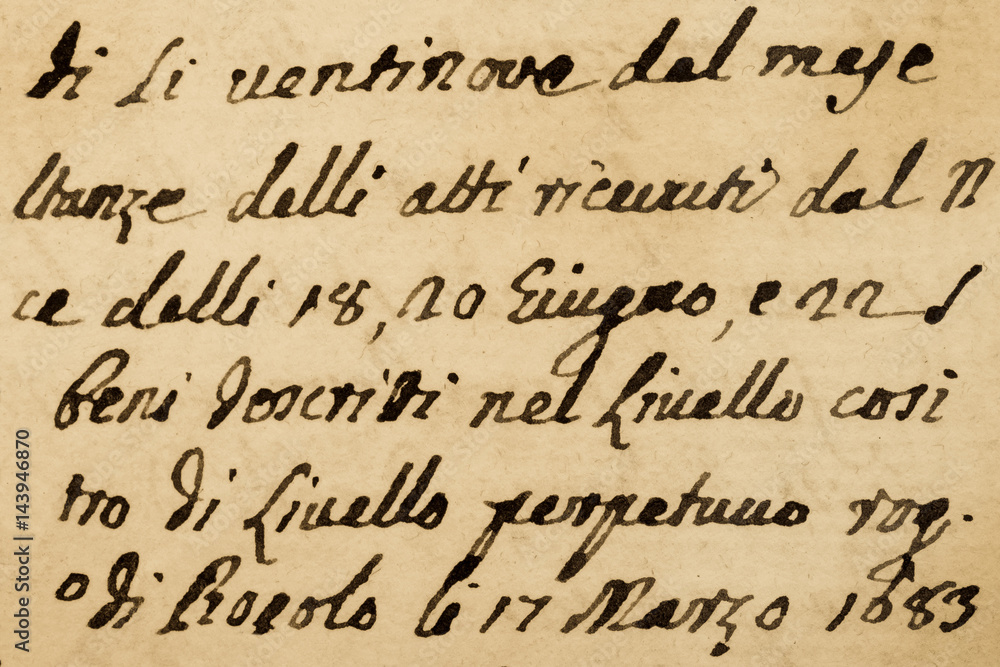 di li ventinove del mese
ltanze delli atti ricevuti dal N
ce delli 18, 20 Giugno, e 22
beni descritti nel Livello così
tro di Livello perpetuuo rog.
o di li 17 Marzo 1683
Adobe Stock | #143946870